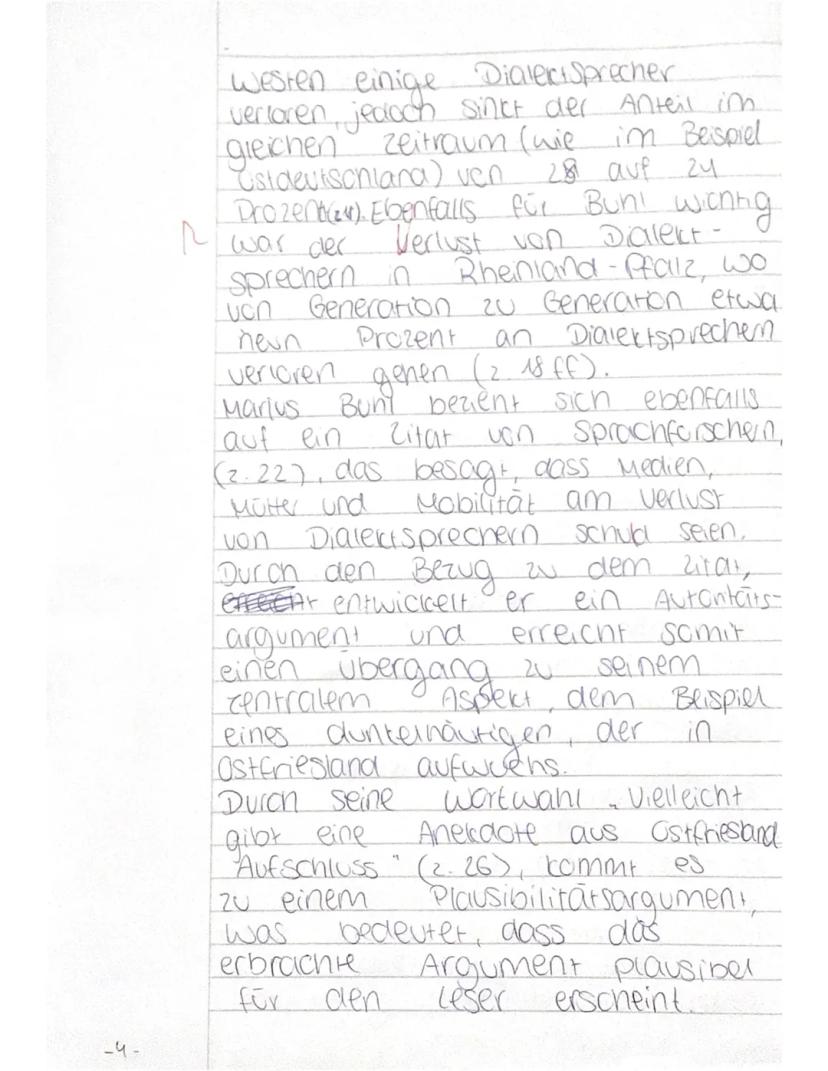 Westen einige Dialektsprecher
verloren, jedoch sinkt der Anteil im
gleichen Zeitraum (wie im Beispiel
Ostdeutschland) von 28 auf 24
Prozent (Z.4). Ebenfalls für Buhl wichtig
war der Verlust von Dialekt-
sprechern in Rheinland-Pfalz, wo
von Generation zu Generation etwa
neun Prozent an Dialektsprechern
verloren gehen (Z. 18 ff).
Marius Buhl bezieht sich ebenfalls
auf ein Zitat von Sprachforschern,
(Z. 22), das besagt, dass Medien,
Mütter und Mobilität am Verlust
von Dialektsprechern schuld seien.
Durch den Bezug zu dem Zitat,
entwickelt er ein Autoritäts-
argument und erreicht somit
einen Übergang zu seinem
zentralem Aspekt, dem Beispiel
eines dunkelhäutigen, der in
Ostfriesland aufwuchs.
Durch seine Wortwahl „Vielleicht
gibt eine Anekdote aus Ostfriesland
Aufschluss" (Z. 26), kommt es
zu einem Plausibilitätsargument,
was bedeutet, dass das
erbrachte Argument plausibel
für den Leser erscheint.
-4-